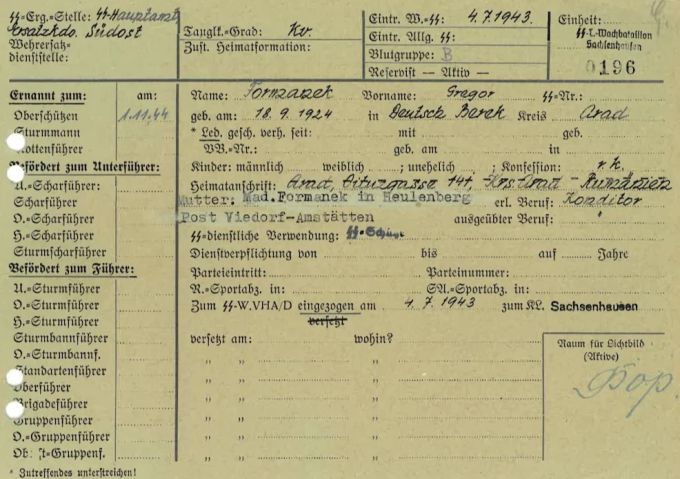 SS-Erg.=Stelle: SS-Hauptamt
Ersatzkdo. Südost
Wehrersatz=
dienststelle:
Tauglk.=Grad: Kv.
Zust. Heimatformation:
Eintr. W.-SS: 4.7.1943.
Eintr. Allg. SS:
Blutgruppe: B
Reservist — Aktiv —
Einheit:
SS-T.-Wachbataillon
Sachsenhausen
0196
Ernannt zum: am:
Oberschützen 1.11.44
Sturmmann
Rottenführer
Befördert zum Unterführer:
U.=Scharführer
Scharführer
O.=Scharführer
H.=Scharführer
Sturmscharführer
Befördert zum Führer:
U.=Sturmführer
O.=Sturmführer
H.=Sturmführer
Sturmbannführer
O.=Sturmbannf.
Standartenführer
Oberführer
Brigadeführer
Gruppenführer
O.=Gruppenführer
Ob: st=Gruppenf.
* Zutreffendes unterstreichen!
Name: Formanek Vorname: Gregor SS=Nr.:
geb. am: 18.9.1924 in Deutsch Kreis Arad
* Led. gesch. verh. seit: mit geb.
VB.=Nr.: geb. am in
Kinder: männlich weiblich ; unehelich ; Konfession: r.k.
Heimatanschrift: Arad, 14t, Krs. Arad - Rumänien
Mutter: Mad.Formanek in Heulenberg erl. Beruf: Konditor
Post Viedorf-Amstätten ausgeübter Beruf: "
SS=dienstliche Verwendung: SS-Schütze
Dienstverpflichtung von bis auf Jahre
Parteieintritt: Parteinummer:
R.=Sportabz. in: SA.=Sportabz. in:
Zum SS-W.VHA/D eingezogen am 4.7.1943 zum KL. Sachsenhausen
versetzt
versetzt am: wohin?
" " "
" " "
" " "
" " "
" " "
" " "
Raum für Lichtbild
(Aktive)